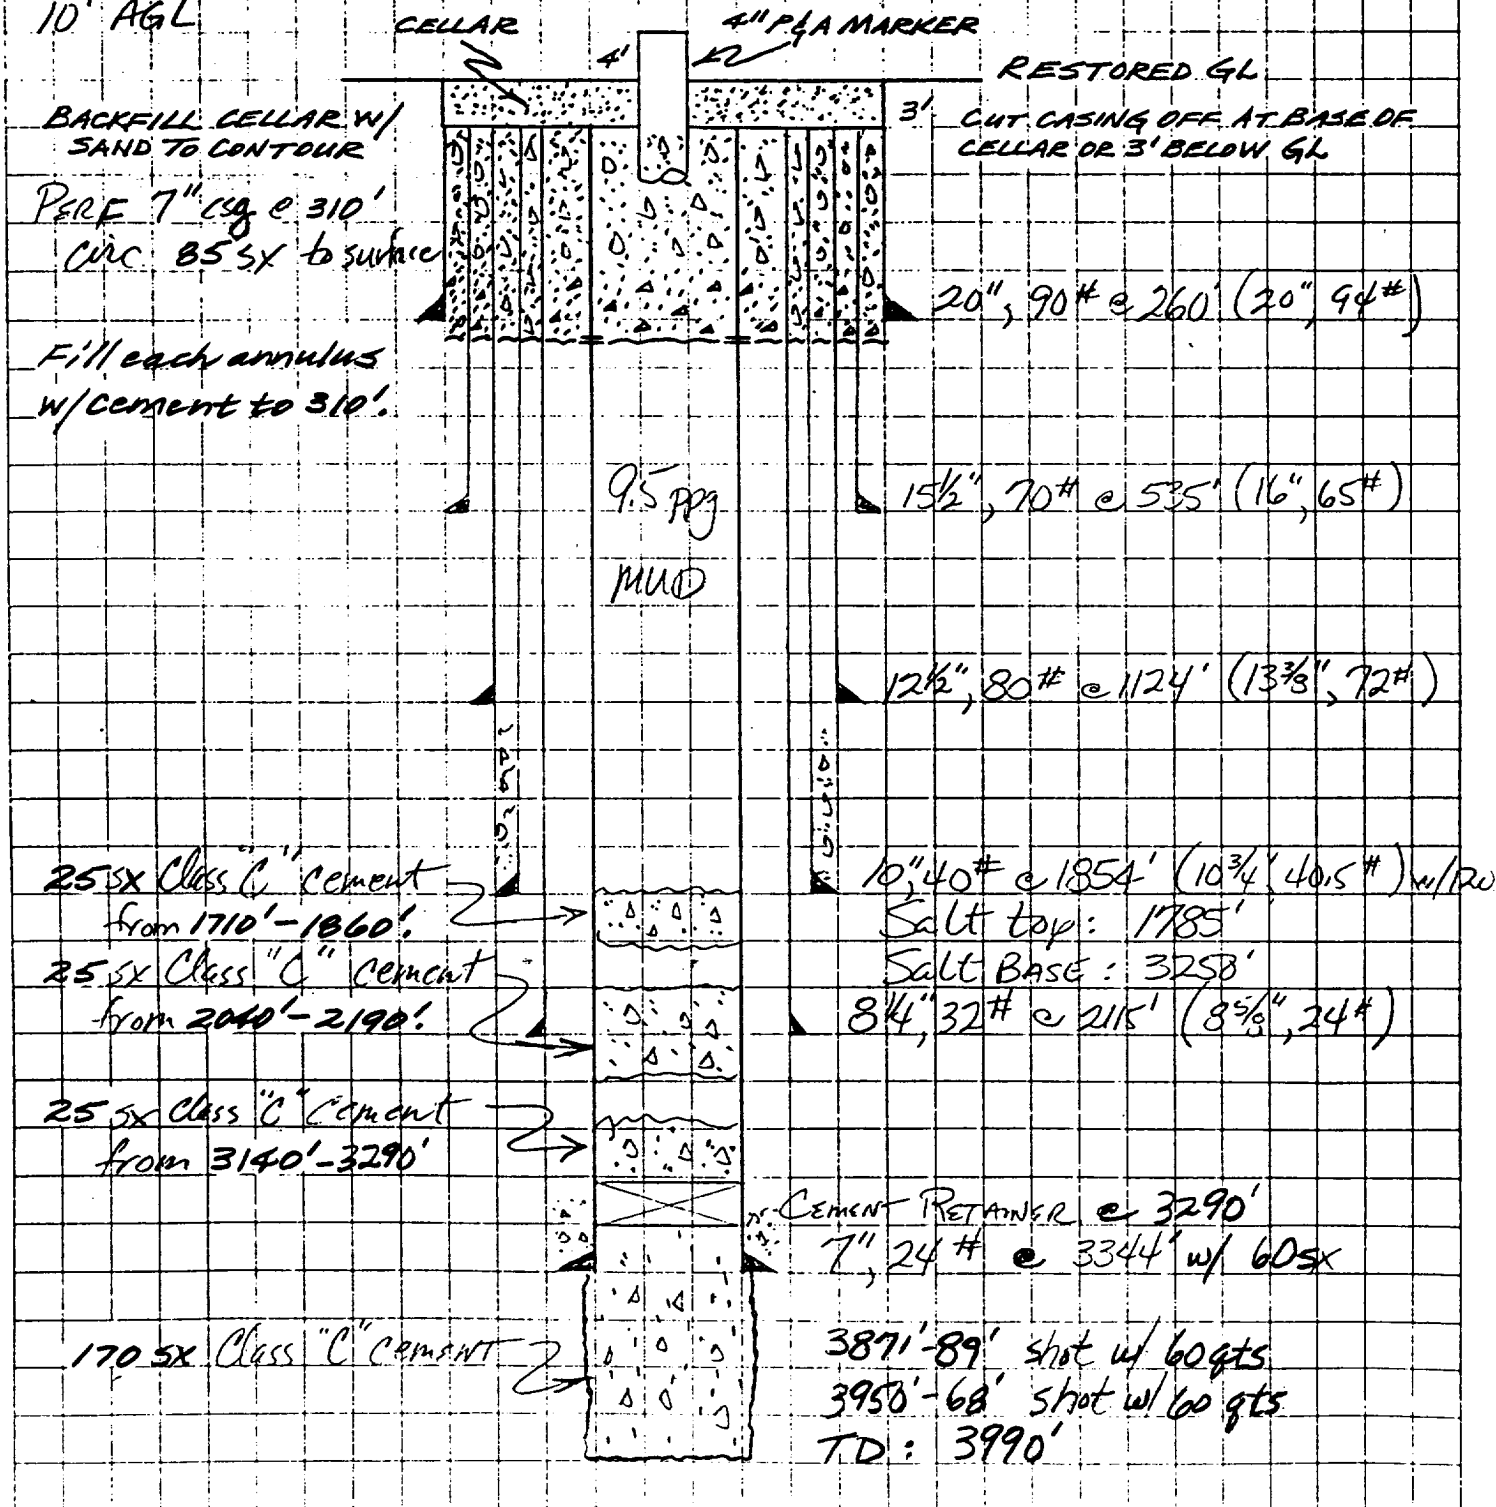 10' AGL
CELLAR
4" P&A MARKER
4'
RESTORED GL
BACKFILL CELLAR W/
SAND TO CONTOUR
3'
CUT CASING OFF AT BASE OF
CELLAR OR 3' BELOW GL
PERF 7" csg @ 310'
circ 85 sx to surface
20", 90# @ 260' (20", 94#)
Fill each annulus
w/cement to 310'.
9.5 ppg
MUD
15½", 70# @ 535' (16", 65#)
12½", 80# @ 1124' (13⅜", 72#)
25 sx Class "C" cement
from 1710'-1860'.
10", 40# @ 1854' (10¾", 40.5#) w/
Salt top: 1785'
Salt BASE: 3258'
25 sx Class "C" cement
from 2040'-2190'.
8¼", 32# @ 2115' (8⅝", 24#)
25 sx Class "C" cement
from 3140'-3290'
CEMENT RETAINER @ 3290'
7", 24# @ 3344' w/ 60sx
170 sx Class "C" cement
3871'-89' shot w/ 60 qts
3950'-68' shot w/ 60 qts
TD: 3990'